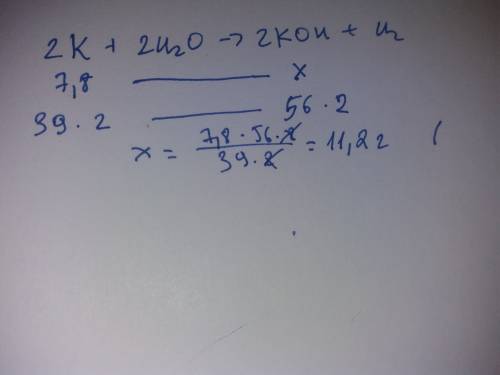 2K + 2H₂O → 2KOH + H₂
7,8 —— x
39 · 2 —— 56 · 2
x = 7,8 · 56 · 2 / 39 · 2 = 11,2 г (